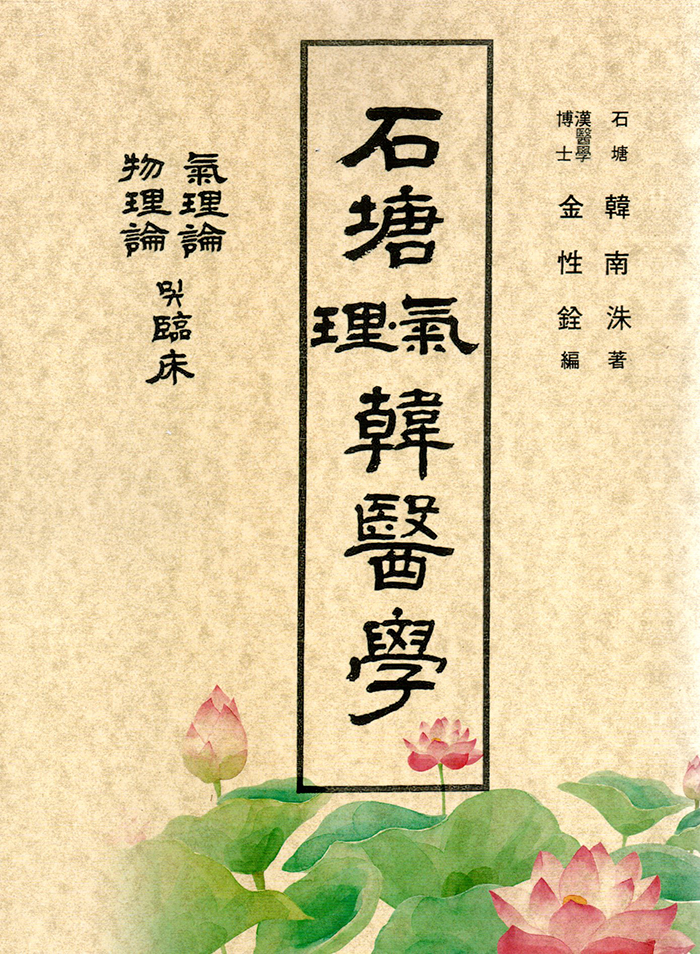 石塘 韓南洙 著
漢醫學博士 金性銓 編
石塘理·氣韓醫學
氣理論
物理論
및臨床